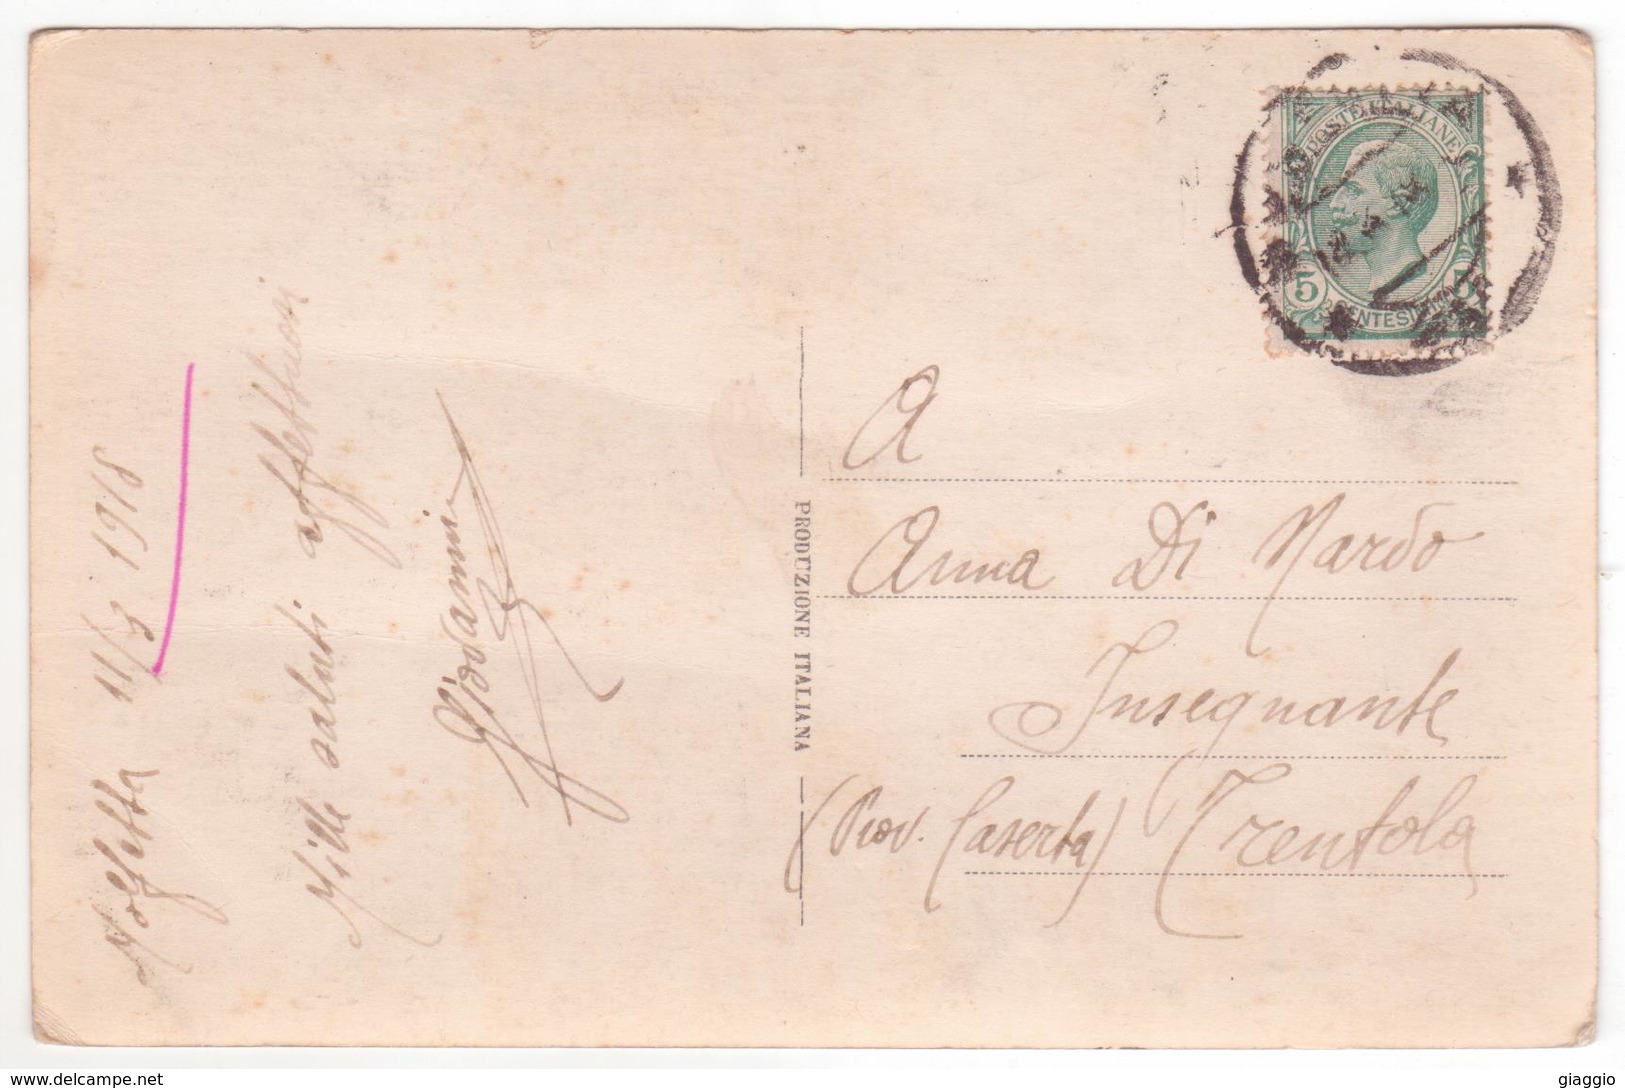 Molfetta 11/3 1918
Mille saluti affettuosi
Giovanni
PRODUZIONE ITALIANA
POSTE ITALIANE
5 CENTESIMI 5
A
Anna Di Nardo
Insegnante
(Prov. Caserta) Trentola
www.delcampe.net
giaggio